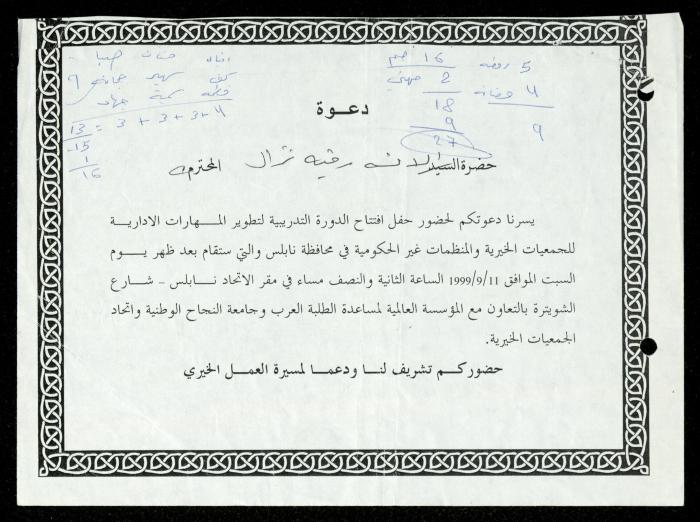 16
5 روضه
2
4
18
9
9
27
3 + 3 + 3 + 4 = 13
9
15
1
16
دعوة
حضرة السيد رقيه نزال المحترم
يسرنا دعوتكم لحضور حفل افتتاح الدورة التدريبية لتطوير المهارات الادارية
للجمعيات الخيرية والمنظمات غير الحكومية في محافظة نابلس والتي ستقام بعد ظهر يوم
السبت الموافق 1999/9/11 الساعة الثانية والنصف مساء في مقر الاتحاد نابلس - شارع
الشويترة بالتعاون مع المؤسسة العالمية لمساعدة الطلبة العرب وجامعة النجاح الوطنية واتحاد
الجمعيات الخيرية.
حضوركم تشريف لنا ودعما لمسيرة العمل الخيري